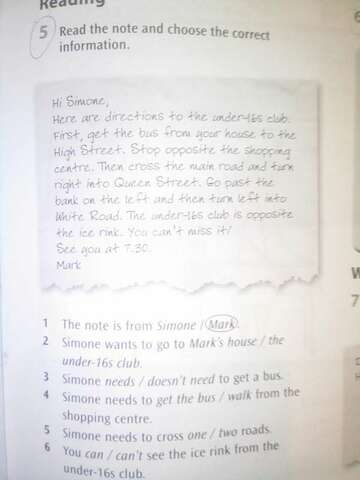 Reading
5 Read the note and choose the correct
information.
Hi Simone,
Here are directions to the under-16s club.
First, get the bus from your house to the
High Street. Stop opposite the shopping
centre. Then cross the main road and turn
right into Queen Street. Go past the
bank on the left and then turn left into
White Road. The under-16s club is opposite
the ice rink. You can't miss it!
See you at 7.30.
Mark
1 The note is from Simone / Mark.
2 Simone wants to go to Mark's house / the
under-16s club.
3 Simone needs / doesn't need to get a bus.
4 Simone needs to get the bus / walk from the
shopping centre.
5 Simone needs to cross one / two roads.
6 You can / can't see the ice rink from the
under-16s club.
7